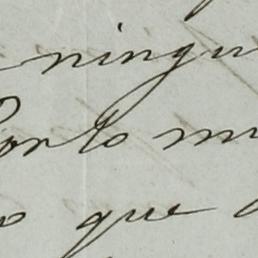 ningu
Porto mu
o que